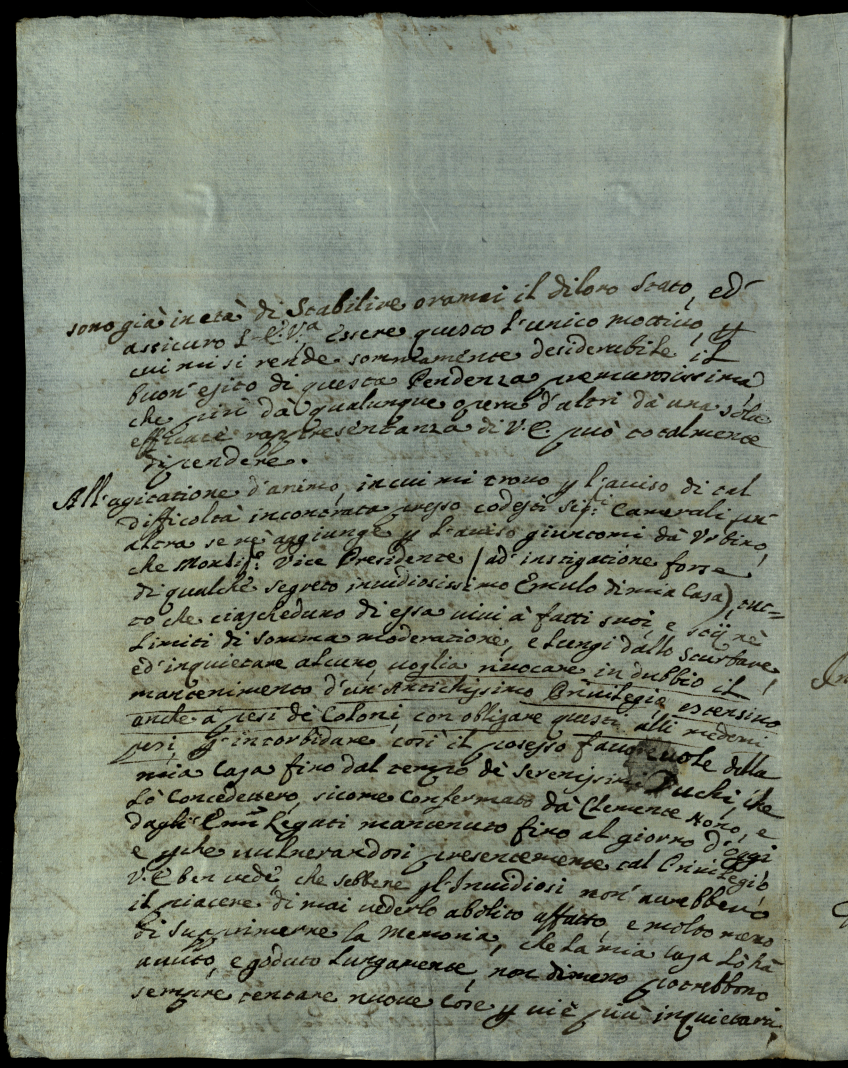 sono già in età di Stabilire oramai il diloro Stato, ed
assicuro L'E. V.ra Essere questo l'unico mottivo, p
cui mi si rende sommamente desiderabile il
buon' esito di questa Pendenza premurosissima
che più dà qualunque opera d'altri dà una sola
efficace rappresentanza di V. E. può totalmente
dipendere.
All'agitatione d'animo, in cui mi trovo p l'aviso di tal
difficoltà incontrata presso codesti Sig.ri Camerali un'
altra se ne aggiunge p l'aviso giuntomi dà Urbino,
che Monsig.re Vice Presidente (ad' instigatione forse
di qualche segreto invidiosissimo Emulo di mia Casa), tut=
to che ciascheduno di essa vivi à fatti suoi, e stij nè
Limiti di somma moderazione, e lungi dallo Sturbare,
ed' inquietare alcuno, voglia rivocare in dubbio il
mantenimento d'un' Antichissimo Privilegio estensivo
anche à pesi de Coloni, con obligare questi alli medemi
pesi, p intorbidare così il posesso favorevole della
mia Casa fino dal tempo dè Serenissimi Duchi, che
Lò Concedettero, sicome Confermato dà Clemente Nono, e
dagli Em.mi Legati mantenuto fino al giorno d'oggi
e pche vulnerandosi presentemente tal Privilegio
V. E. ben vede, che sebbene gl'Invidiosi non' avrebbero
il piacere di mai vederlo abolito affatto, e molto meno
di Supprimerne la Memoria, che La mia Casa Lò hà
avuto, e goduto Lungamente, non dimeno potrebbono
sempre tentare nuove Cose p viè più inquietarci